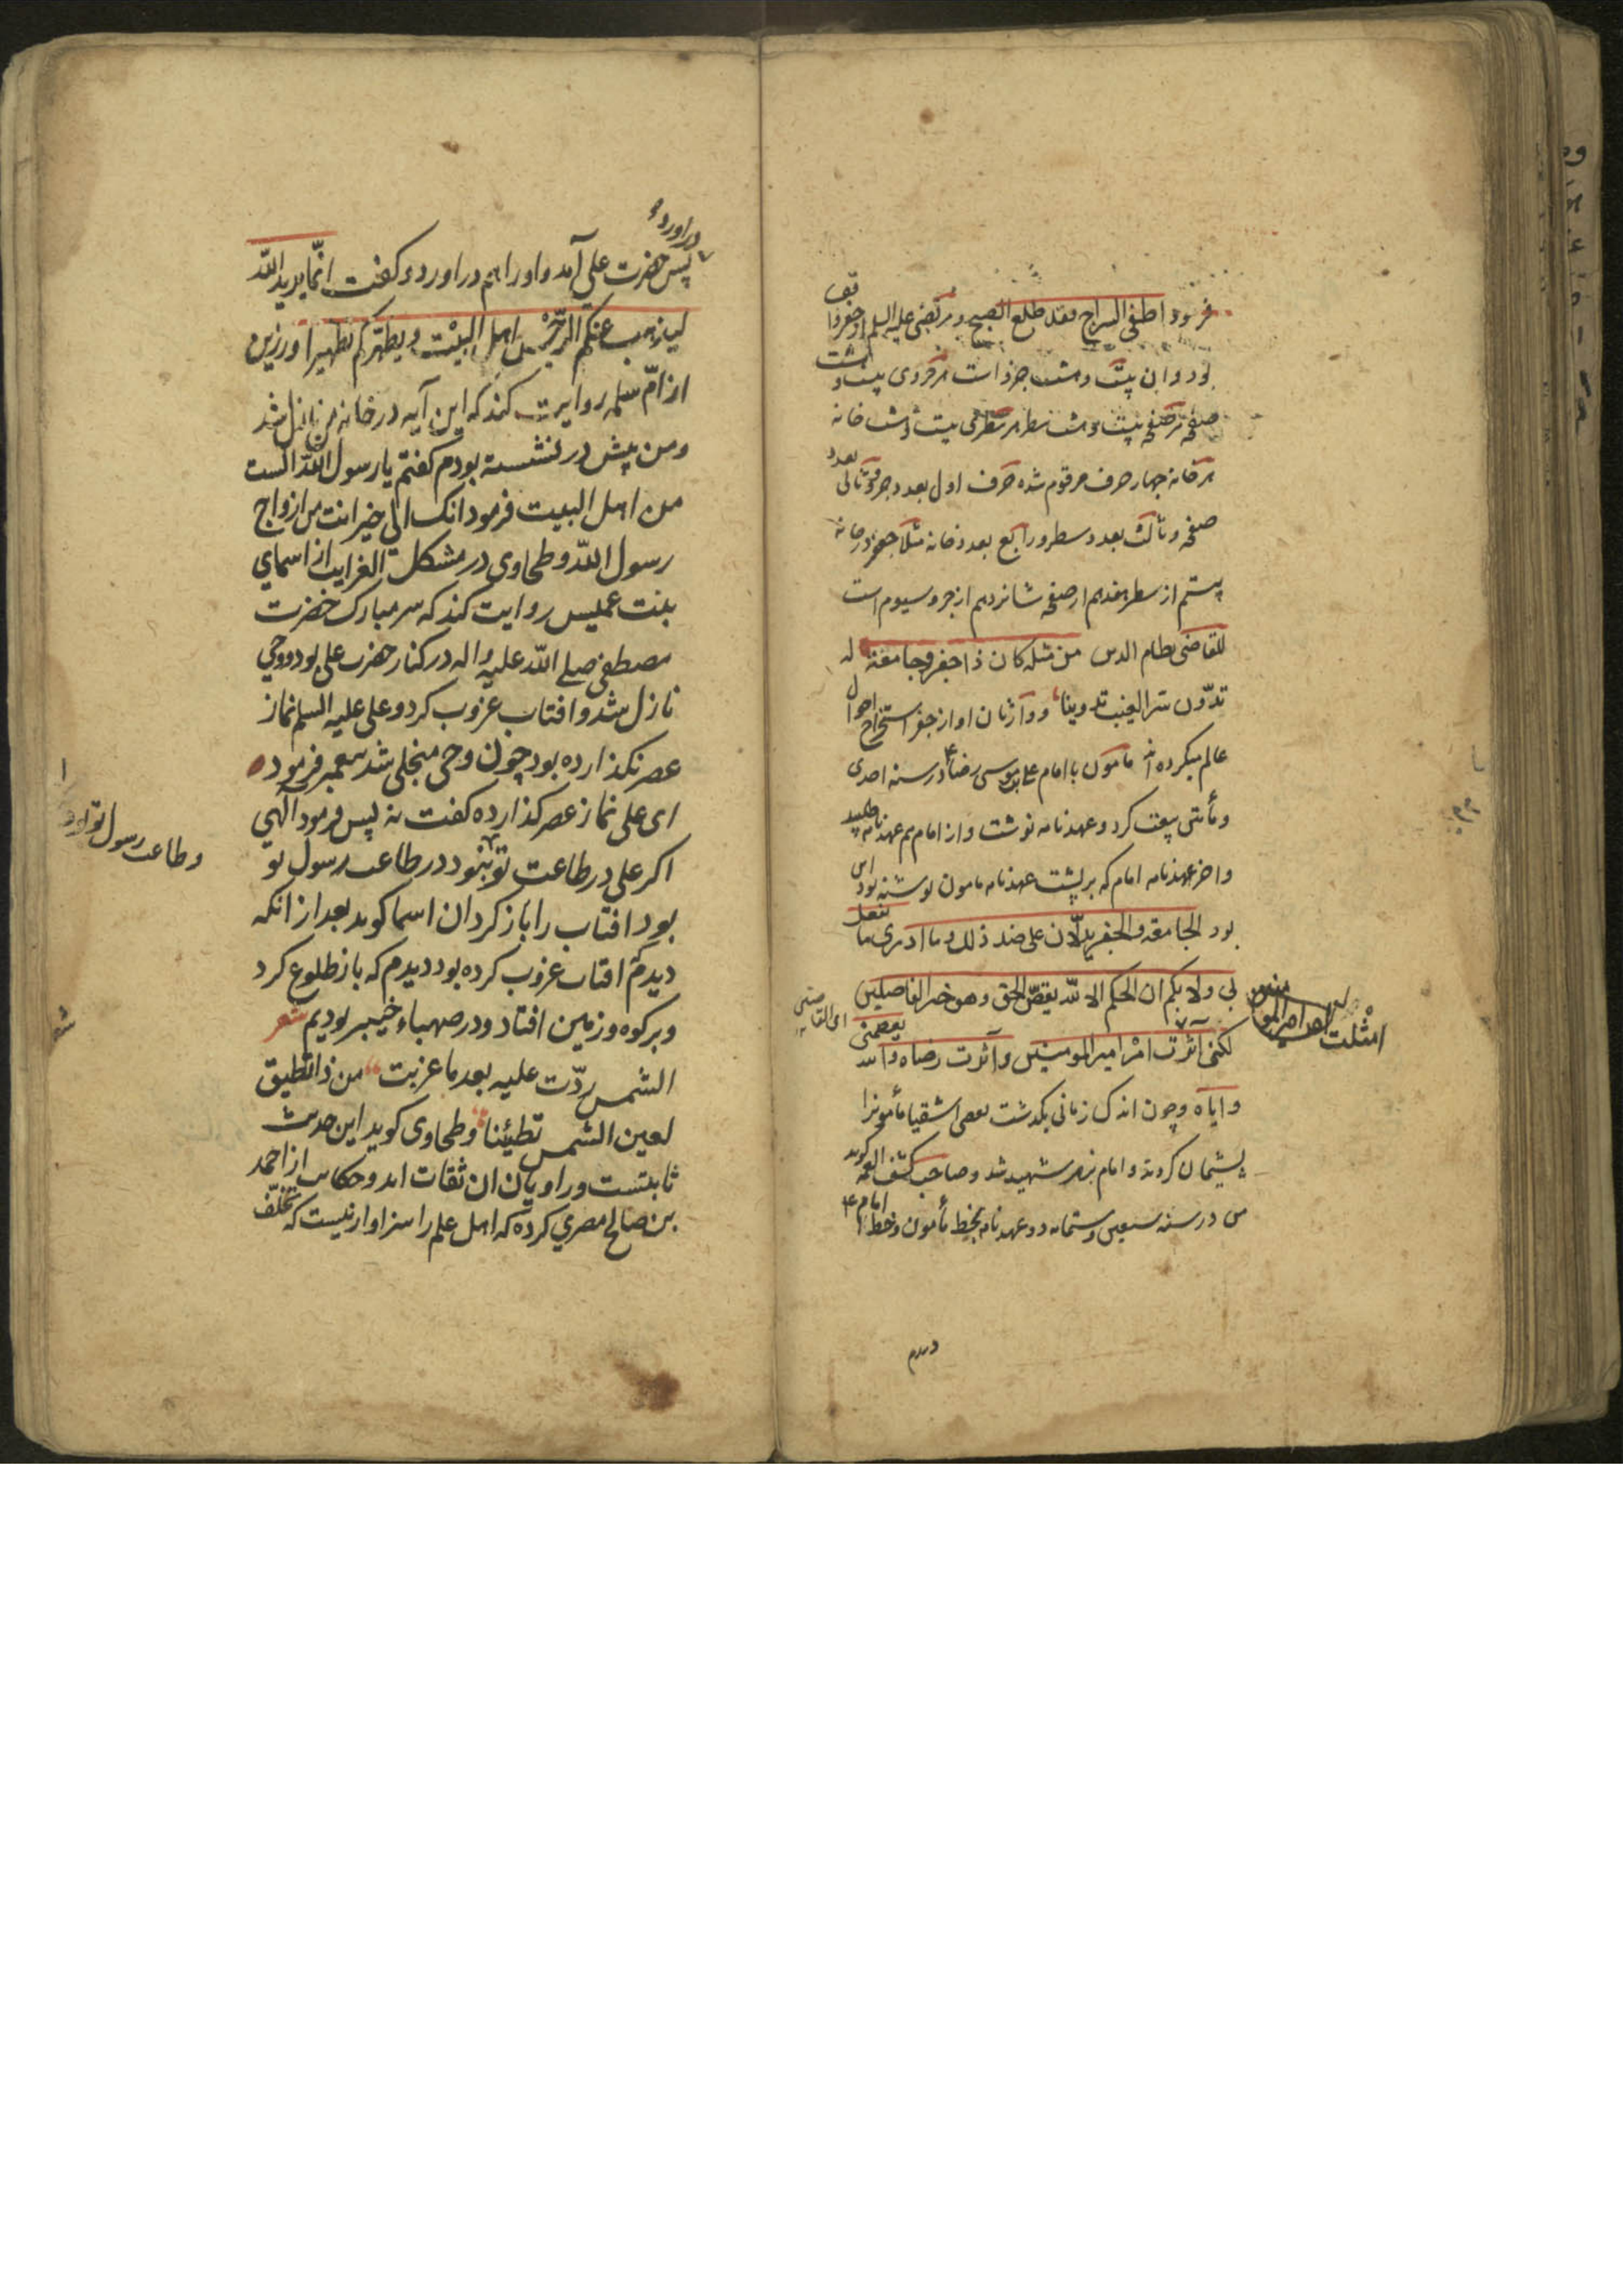 فرمود اطفی السراج فقد طلع الصبح و مرتضی علیه السلم از جفر واقف
بود و ان بیست و هشت جزو است هر جزوی بیست و هشت
صفحه هر صفحه بیست و هشت سطر هر سطری بیست و هشت خانه
هر خانه چهار حرف مرقوم شده حرف اول بعدد جزو و ثانی بعدد
صفحه و ثالث بعدد سطر و رابع بعدد خانه مثلا جعفر در خانه
بیستم از سطر هفدهم از صفحه شانزدهم از جزو سیوم است
للقاضی نظام الدین من مثله کان ذا جفر و جامعة له
تدوّن سر الغیب تدوینا و وارثان او از جفر استخراج احوال
عالم میکرده اند مامون با امام علی بن موسی رضا در سنه احدی
و مأتی بیعت کرد و عهدنامه نوشت و از امام هم عهدنامه طلبید
و اخر عهدنامه امام که بر پشت عهدنامه مامون نوشته بود این
بود الجامعة و الجفر یدلان علی ضد ذلک و ما ادری ما یفعل
بی و لا بکم ان الحکم الا لله یقص الحق و هو خیر الفاصلین
لکنی آثرت امر امیر المومنین و آثرت رضاه و الله یعصمنی
و ایاه و چون اندک زمانی بگذشت بعضی اشقیا مأمونرا
پشیمان کردند و امام بزهر شهید شد و صاحب کشف الغمه گوید
من در سنه سبعین و ستمائه دو عهدنامه بخط مأمون و خط امام
امتثلت امر امیر المومنین
دیدم
در اورد
پس حضرت علی آمد و او را هم در اورد و کفت انّما یرید اللّه
لیذهب عنکم الرّجس اهل البیت و یطهّرکم تطهیرا و رزین
از امّ سلمه روایت کند که این آیه در خانه من نازل شد
و من پیش در نشسته بودم کفتم یا رسول اللّه الست
من اهل البیت فرمود انک الی خیر انت من ازواج
رسول اللّه و طحاوی در مشکل الغرایب از اسمای
بنت عمیس روایت کند که سر مبارک حضرت
مصطفی صلی اللّه علیه و اله در کنار حضرت علی بود و وحی
نازل شد و افتاب غروب کرد و علی علیه السلم نماز
عصر نکذارده بود چون وحی منجلی شد پیغمبر فرمود
ای علی نماز عصر کذارده کفت نه پس فرمود الهی
اکر علی در طاعت تو بود و در طاعت رسول تو
بود افتاب را باز کردان اسما کوید بعد از انکه
دیدم افتاب غروب کرده بود دیدم که باز طلوع کرد
و بر کوه و زمین افتاد و در صهباء خیبر بودیم شعر
الشمس ردّت علیه بعد ما غربت من ذا تطیق
لعین الشمس تطیئنا و طحاوی کوید این حدیث
ثابتست و راویان ان ثقات اند و حکایت از احمد
بن صالح مصری کرده که اهل علم را سزاوار نیست که تخلّف
و طاعت رسول تو
شعر